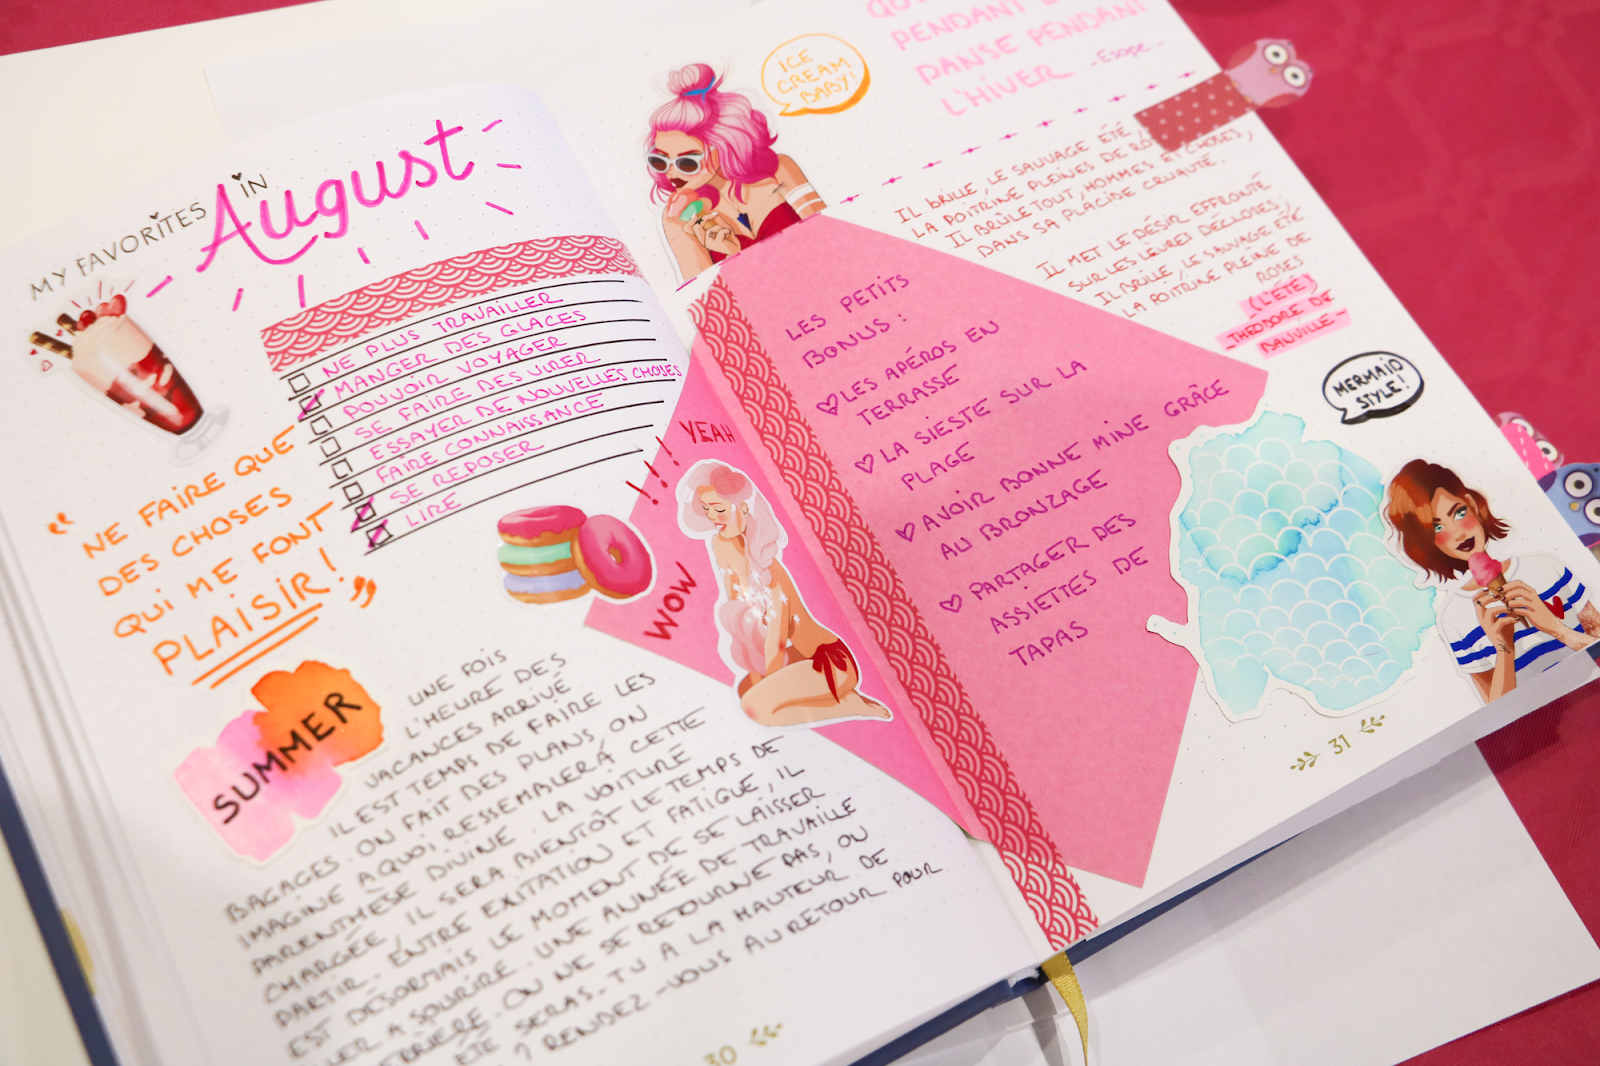 MY FAVORITES IN
August
NE PLUS TRAVAILLER
MANGER DES GLACES
POUVOIR VOYAGER
SE FAIRE DES VIRER
ESSAYER DE NOUVELLES CHOSES
FAIRE CONNAISSANCE
SE REPOSER
LIRE
“ NE FAIRE QUE
DES CHOSES
QUI ME FONT
PLAISIR! ”
SUMMER
UNE FOIS
L'HEURE DES
VACANCES ARRIVÉ
IL EST TEMPS DE FAIRE LES
BAGAGES. ON FAIT DES PLANS, ON
IMAGINE A QUOI RESSEMBLERA CETTE
PARENTHÈSE DIVINE. LA VOITURE
CHARGÉE, IL SERA BIENTÔT LE TEMPS DE
PARTIR. ENTRE EXITATION ET FATIGUE, IL
EST DÉSORMAIS LE MOMENT DE SE LAISSER
LER A SOURIRE. UNE ANNÉE DE TRAVAILLE
RRIÈRE. ON NE SE RETOURNE PAS, OU
ÉTÉ SERAS-TU A LA HAUTEUR DE
? RENDEZ-VOUS AU RETOUR POUR
30
YEAH
!!!!
WOW
ICE
CREAM
BABY!
PENDANT
DANSE PENDANT
L'HIVER -Esope-
IL BRILLE, LE SAUVAGE ÉTÉ,
LA POITRINE PLEINES DE RO
IL BRÛLE TOUT, HOMMES ET CHOSES,
DANS SA PLACIDE CRUAUTÉ.
IL MET LE DÉSIR EFFRONTÉ
SUR LES LÈVRES DÉCLOSES;
IL BRILLE, LE SAUVAGE ÉTÉ
LA POITRINE PLEINE DE
ROSES
(L'ÉTÉ)
-THEODORE DE
BANVILLE-
LES PETITS
BONUS :
LES APÉROS EN
TERRASSE
LA SIESTE SUR LA
PLAGE
AVOIR BONNE MINE GRÂCE
AU BRONZAGE
PARTAGER DES
ASSIETTES DE
TAPAS
MERMAID
STYLE!
31